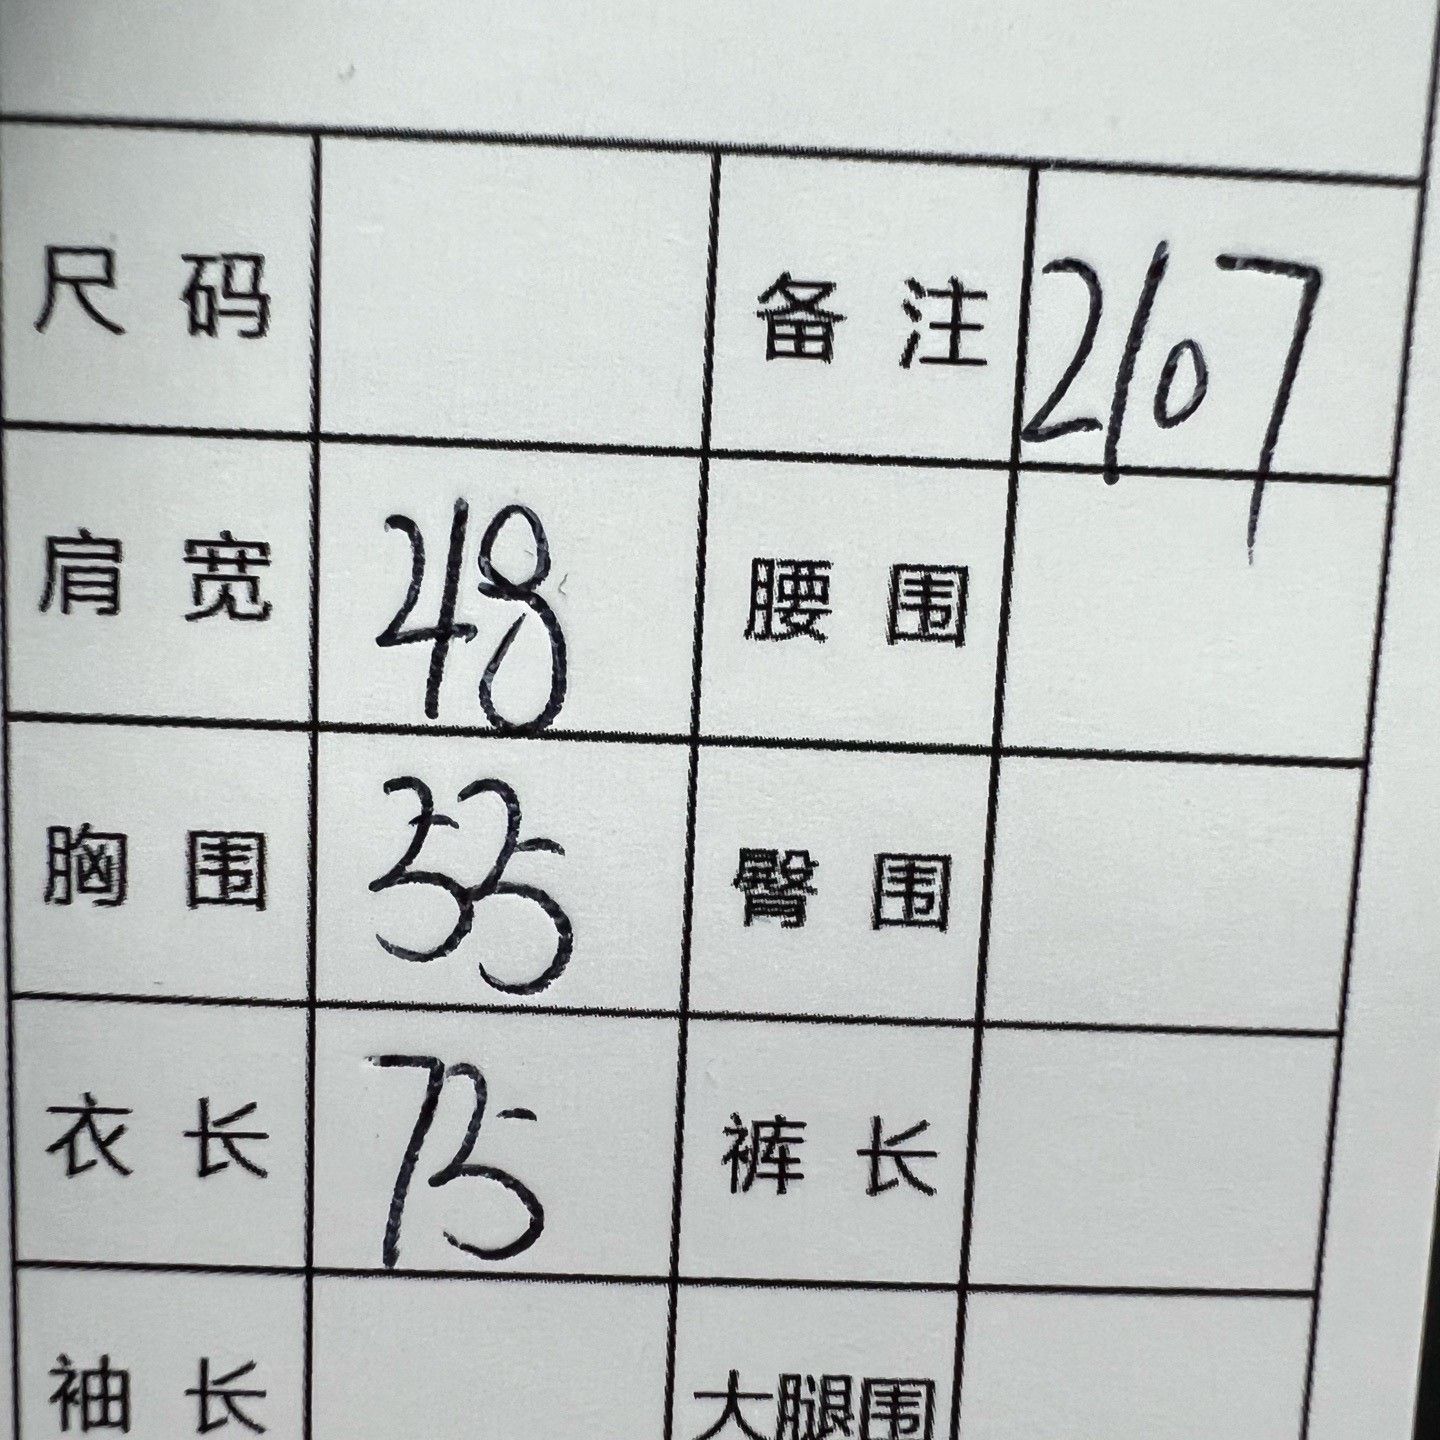 尺码 备注 2107
肩宽 48 腰围
胸围 55 臀围
衣长 75 裤长
袖长 大腿围